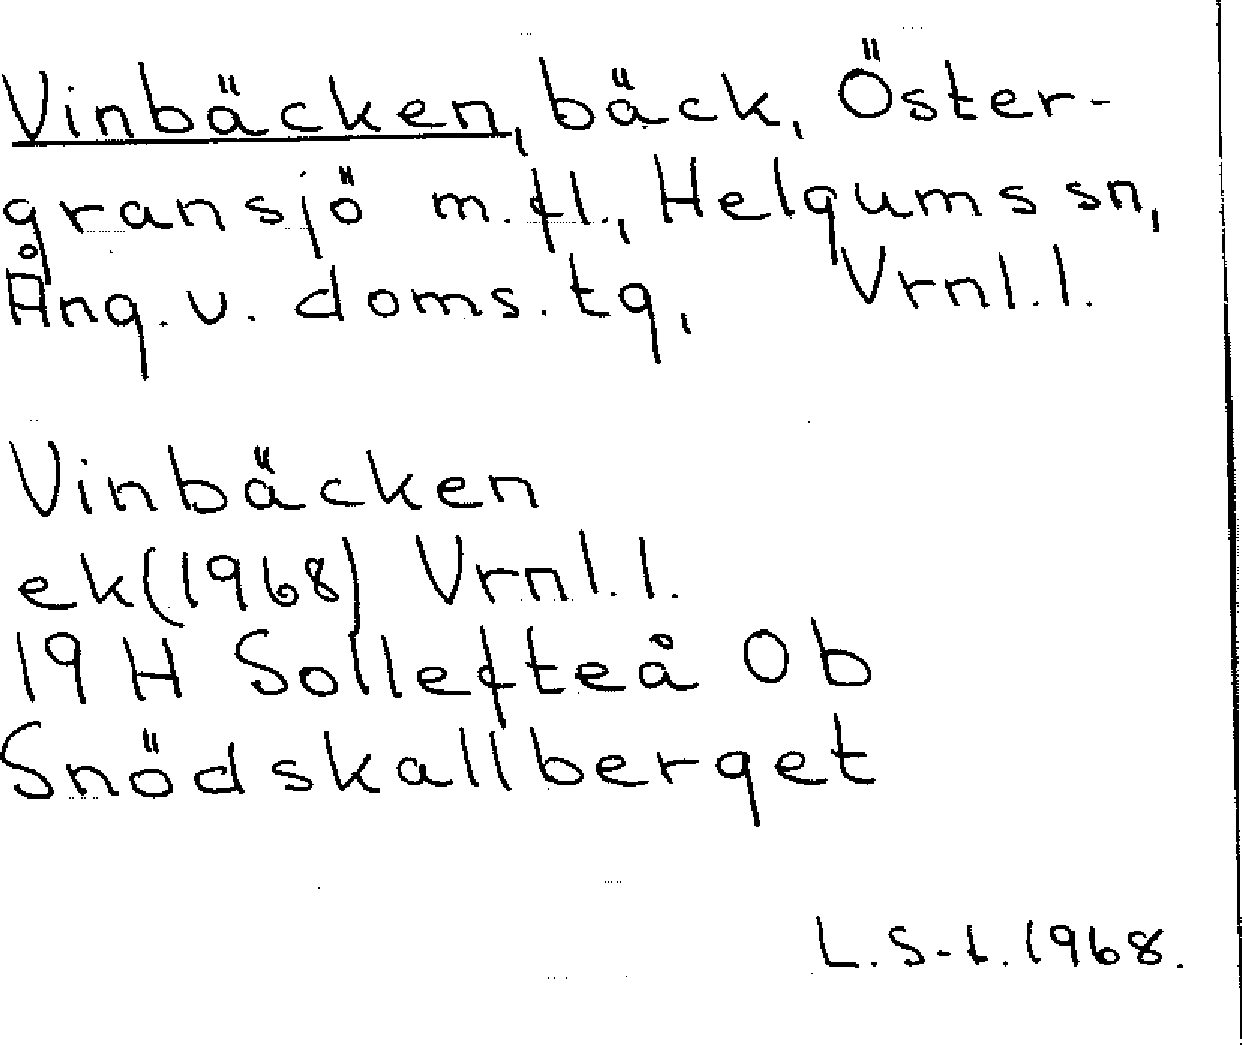 Vinbäcken, bäck, Öster-
gransjö m.fl., Helgums sn,
Ång. v. doms. tg, Vrnl.l.
Vinbäcken
ek(1968) Vrnl.l.
19 H Sollefteå Ob
Snödskallberget
L.S-t.1968.